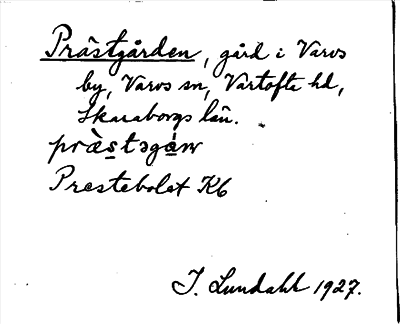 Prästgården, gård i Varvs
by, Varvs sn, Vartofta hd,
Skaraborgs län.
præ̀stgáɷ
Prestebolet Kb
I. Lundahl 1927.